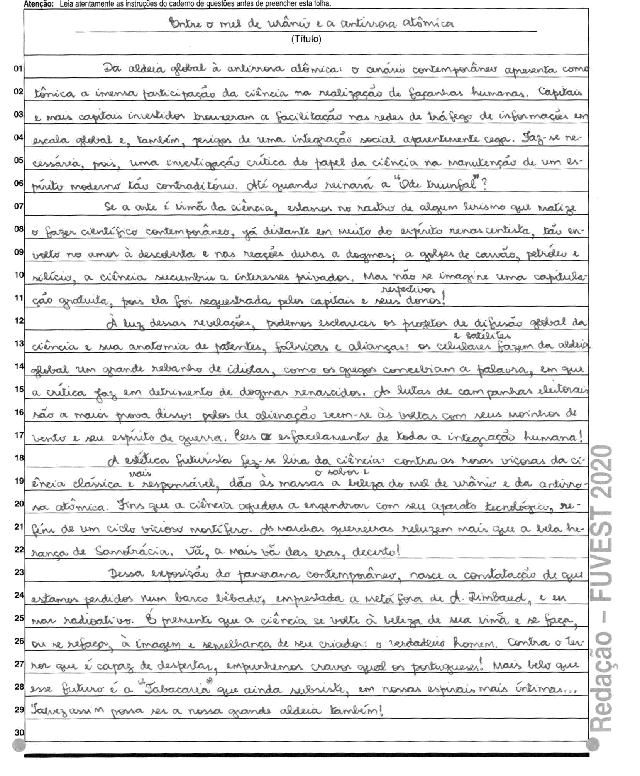 Atenção: Leia atentamente as instruções do caderno de questões antes de preencher esta folha.
Entre o mel de urânio e a antirrosa atômica
(Título)
01 Da aldeia global à antirrosa atômica: o cenário contemporâneo apresenta como
02 tônica a imensa participação da ciência na realização de façanhas humanas. Capitais
03 e mais capitais investidos trouxeram a facilitação nas redes de tráfego de informações em
04 escala global e, também, perigos de uma integração social aparentemente cega. Faz-se ne-
05 cessária, pois, uma investigação crítica do papel da ciência na manutenção de um es-
06 pírito moderno tão contraditório. Até quando reinará a "Ode triunfal"?
07 Se a arte é irmã da ciência, estamos no rastro de algum lirismo que matize
08 o fazer científico contemporâneo, já distante em muito do espírito renascentista, tão en-
09 volto no amor à descoberta e nas reações duras a dogmas; a golpes de carvão, petróleo e
10 silício, a ciência sucumbiu a interesses privados. Mas não se imagine uma capitula-
respectivos
11 ção gratuita, pois ela foi sequestrada pelos capitais e seus donos!
12 À luz dessas revelações, podemos esclarecer os projetos de difusão global da
e satélites
13 ciência e sua anatomia de patentes, fábricas e alianças: os celulares fazem da aldeia
14 global um grande rebanho de idiotas, como os gregos concebiam a palavra, em que
15 a crítica faz em detrimento de dogmas renascidos. As lutas de campanhas eleitorais
16 são a maior prova disso: polos de alienação veem-se às voltas com seus moinhos de
17 vento e seu espírito de guerra. Eis o esfacelamento de toda a integração humana!
18 A estética futurista fez-se lira da ciência: contra as rosas viçosas da ci-
mais o sabor e
19 ência clássica e responsável, dão às massas a beleza do mel de urânio e da antirro-
20 sa atômica. Fins que a ciência ajudou a engendrar com seu aparato tecnológico, re-
21 féns de um ciclo vicioso mortífero. As marchas guerreiras reluzem mais que a bela he-
22 rança de Samotrácia. Vã, a mais vã das eras, decerto!
23 Dessa exposição do panorama contemporâneo, nasce a constatação de que
24 estamos perdidos num barco bêbado, emprestada a metáfora de A. Rimbaud, e em
25 mar radioativo. É premente que a ciência se volte à beleza de sua irmã e se faça,
26 ou se refaça, à imagem e semelhança de seu criador: o verdadeiro homem. Contra o ter-
27 ror que é capaz de despertar, empunhemos cravos qual os portugueses! Mais belo que
28 esse futuro é a "Tabacaria" que ainda subsiste, em nossas espirais mais íntimas...
29 Talvez assim possa ser a nossa grande aldeia também!
30
Redação – FUVEST 2020